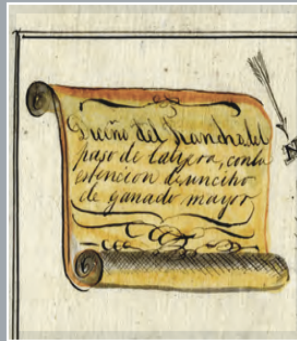 Diceño del Rancho del
paso de Latijera, con la
estencion de un citio
de ganado mayor
N